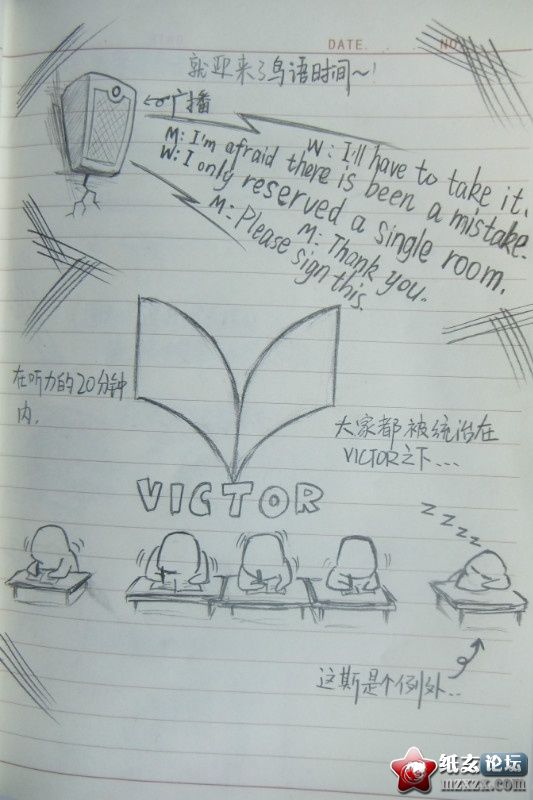 DATE. NO
就迎来了鸟语时间~!
广播
W: I'll have to take it.
M: I'm afraid there is been a mistake.
W: I only reserved a single room.
M: Thank you.
M: Please sign this.
在听力的20分钟
内.
大家都被统治在
VICTOR之下...
VICTOR
zzzz
这斯是个例外..
纸友论坛
mzxzx.com